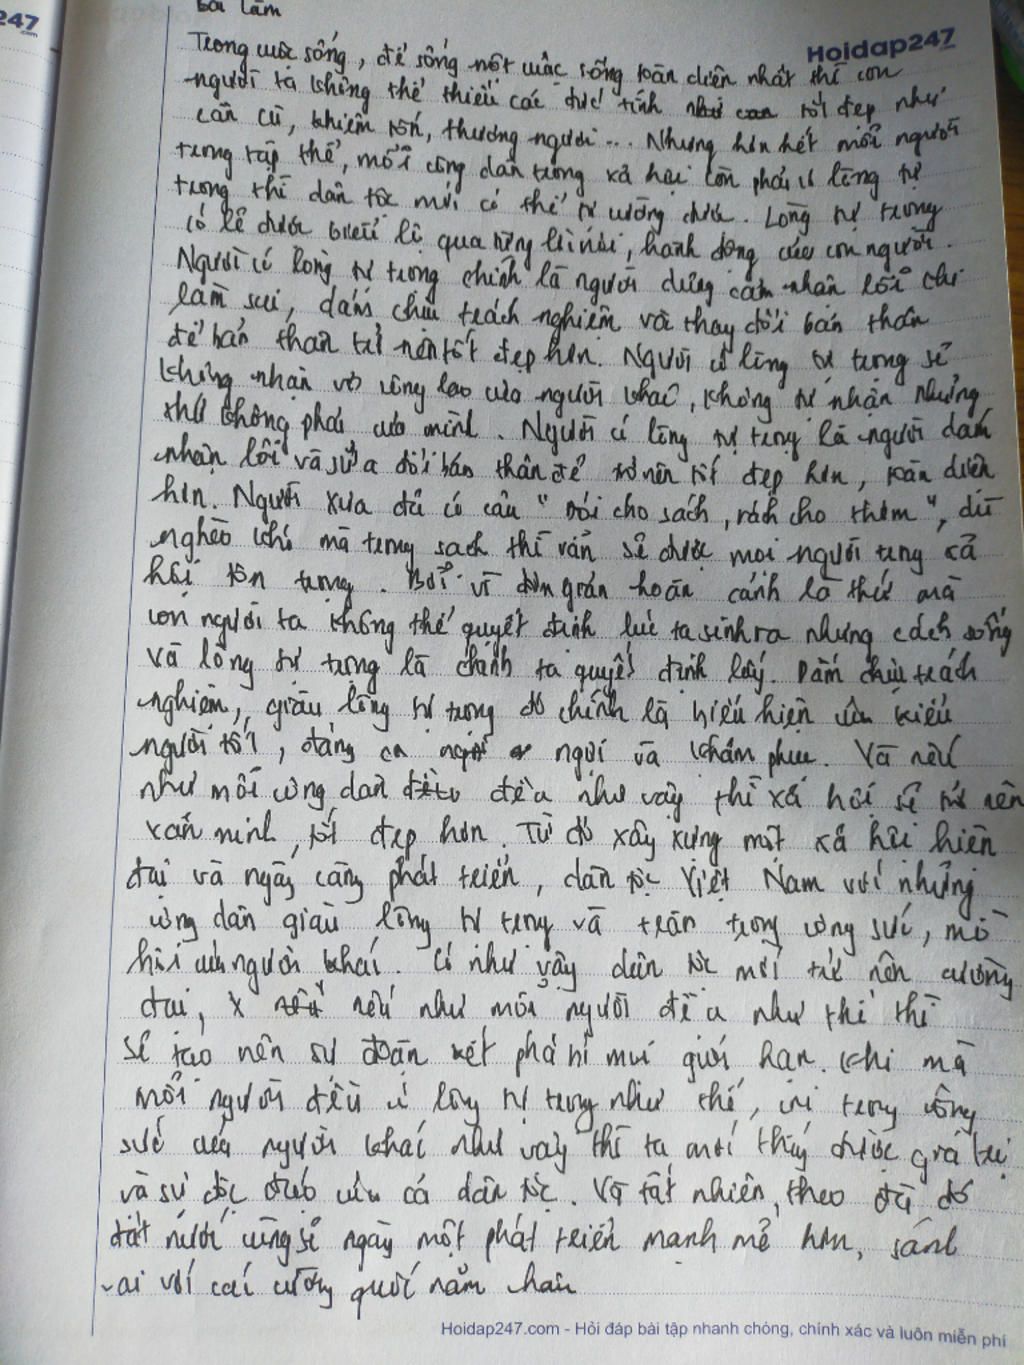 247
.com
Bài làm
Hoidap247
.com
Trong cuộc sống, để sống một cuộc sống toàn diện nhất thì con
người ta không thể thiếu các đức tính như can tốt đẹp như
cần cù, khiêm tốn, thương người... Nhưng hơn hết mỗi người
trong tập thể, mỗi công dân trong xã hội còn phải có lòng tự
trọng thì dân tộc mới có thể tự cường được. Lòng tự trọng
có lẽ được biểu lộ qua từng lời nói, hành động của con người.
Người có lòng tự trọng chính là người dũng cảm nhận lỗi khi
làm sai, dám chịu trách nghiệm và thay đổi bản thân
để bản thân trở nên tốt đẹp hơn. Người có lòng tự trọng sẽ
không nhận vơ công lao của người khác, không tự nhận những
thứ không phải của mình. Người có lòng tự trọng là người dám
nhận lỗi và sửa đổi bản thân để trở nên tốt đẹp hơn, toàn diện
hơn. Người xưa đã có câu "đói cho sạch, rách cho thơm", dù
nghèo khó mà trong sạch thì vẫn sẽ được mọi người trong xã
hội tôn trọng. Bởi vì đơn giản hoàn cảnh là thứ mà
con người ta không thể quyết định lúc ta sinh ra nhưng cách sống
và lòng tự trọng là chính ta quyết định lấy. Dám chịu trách
nghiệm, giàu lòng tự trọng đó chính là biểu hiện của kiểu
người tốt, đáng ca ngợi và khâm phục. Và nếu
như mỗi công dân đều như vậy thì xã hội sẽ trở nên
văn minh, tốt đẹp hơn. Từ đó xây xựng một xã hội hiện
đại và ngày càng phát triển, dân tộc Việt Nam với những
công dân giàu lòng tự trọng và trân trọng công sức, mồ
hôi của người khác. Có như vậy dân tộc mới trở nên cường
đại, nếu nếu như mỗi người đều như thế thì
sẽ tạo nên sự đoàn kết phá vỡ mọi giới hạn. Khi mà
mỗi người đều có lòng tự trọng như thế, coi trọng công
sức của người khác như vậy thì ta mới thấy được giá trị
và sự độc đáo của cả dân tộc. Và tất nhiên, theo đà đó
đất nước cũng sẽ ngày một phát triển mạnh mẽ hơn, sánh
vai với các cường quốc năm châu
Hoidap247.com - Hỏi đáp bài tập nhanh chóng, chính xác và luôn miễn phí